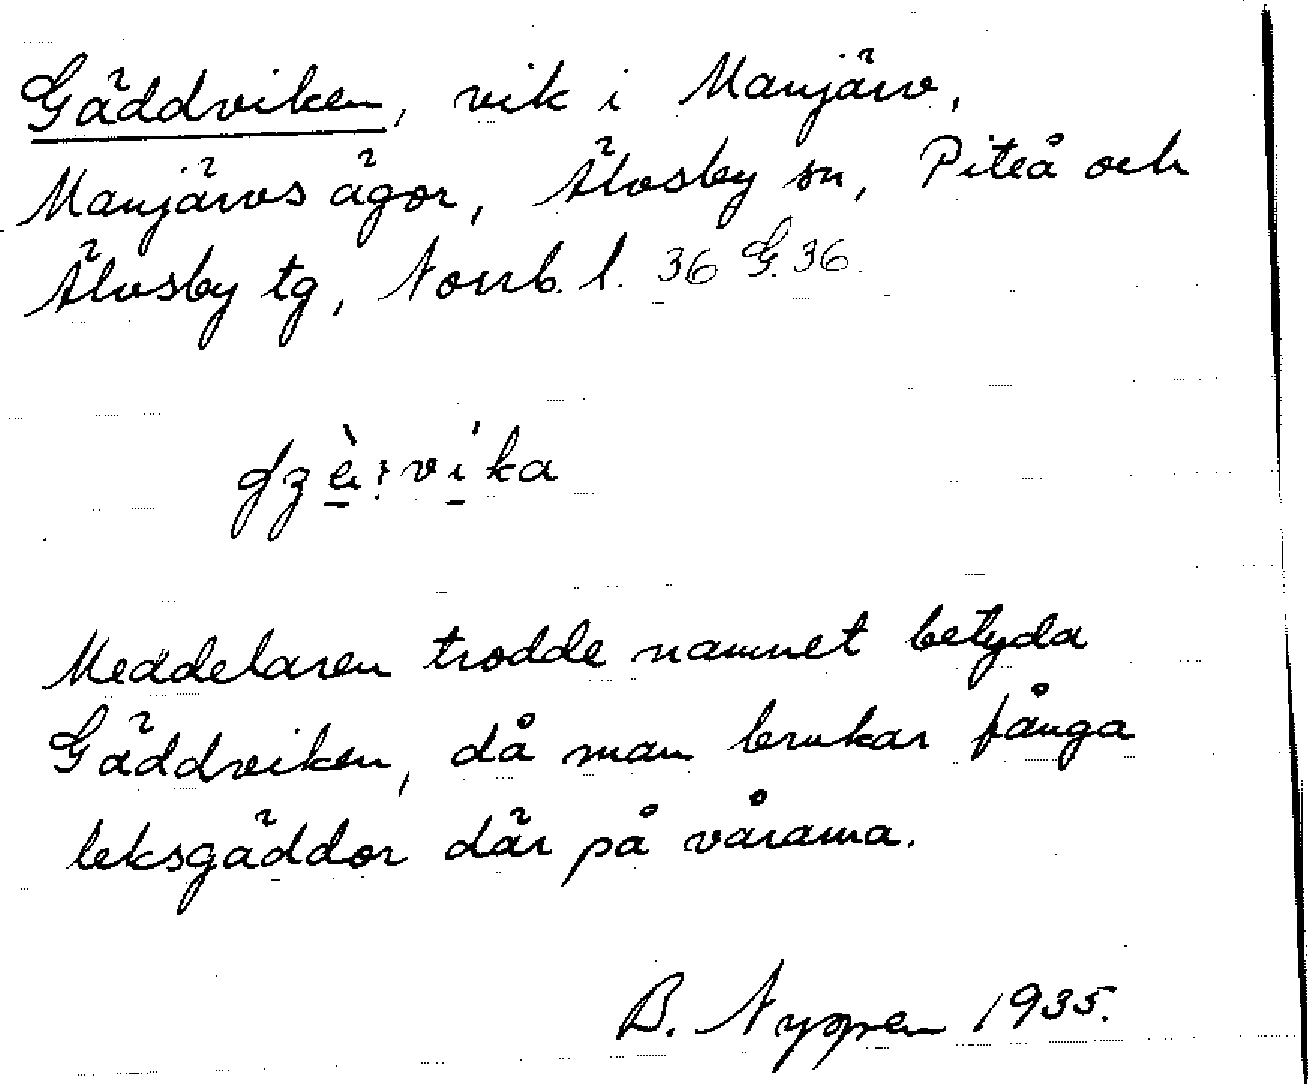 Gäddviken, vik i Manjärv,
Manjärvs ägor, Älvsby sn, Piteå och
Älvsby tg, Norrb. l. 36 G. 36.
vika
Meddelaren trodde namnet betyda
Gäddviken, då man brukar fånga
leksgäddor där på vårarna.
B. Nygren 1935.